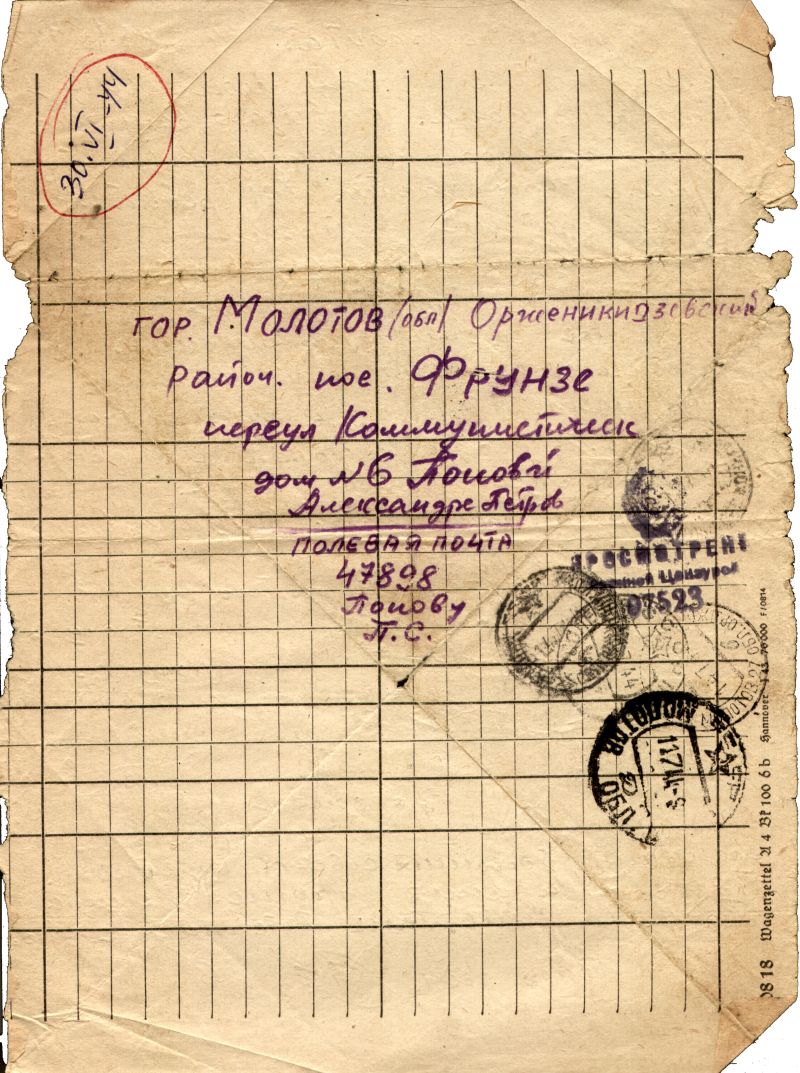 30.VI-44
гор. Молотов (обл) Орженикидзевский
район. пос. Фрунзе
переул Коммунистическ
дом №6 Поповой
Александре Петров
ПОЛЕВАЯ ПОЧТА
47898
Попову
П.С.
ПРОСМОТРЕНО
Военной Цензурой
07523
МОЛОТОВ
11 7 44
0818 Wagenzettel A 4 Bf 100 6b Hannover 70000 F/0814